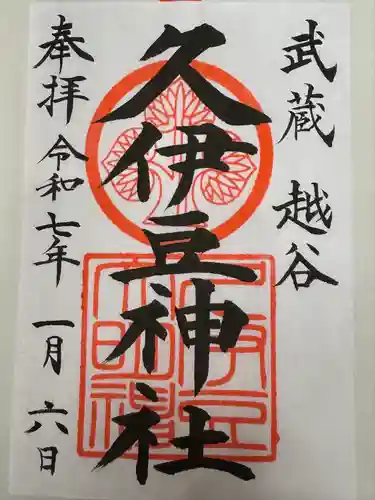 武蔵 越谷
久伊豆神社
奉拝 令和七年 一月 六日